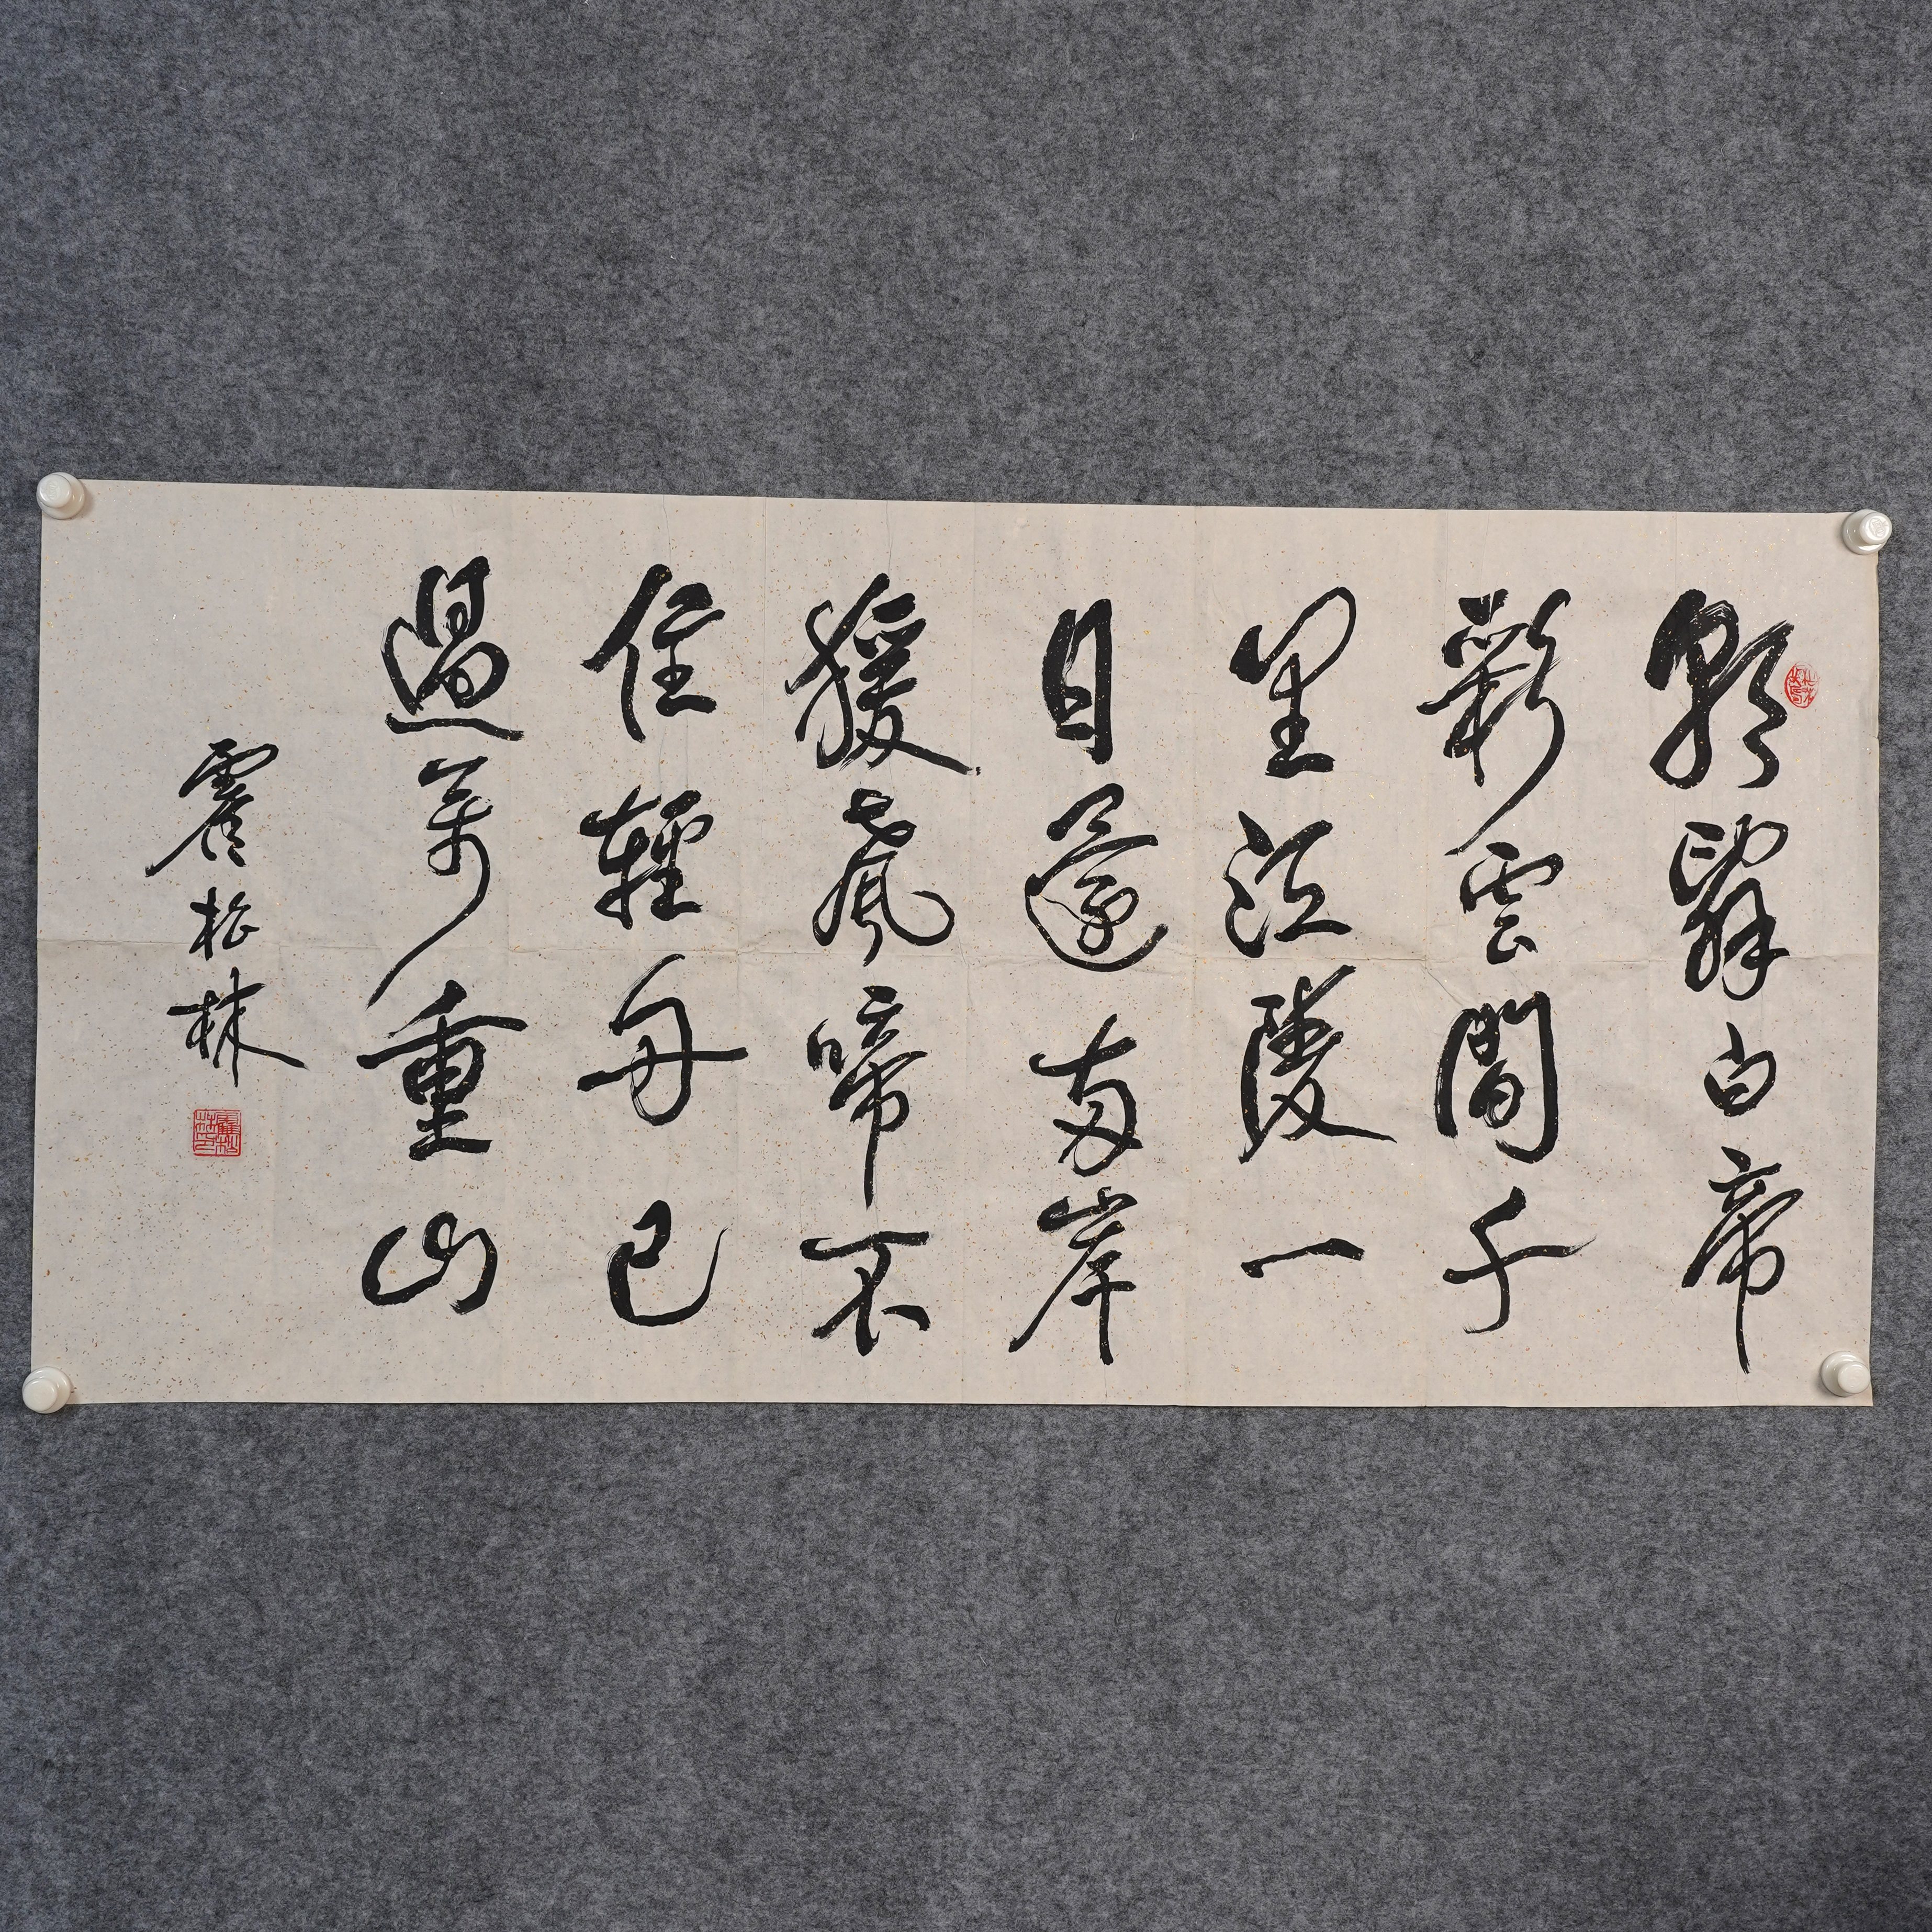 朝辭白帝
彩雲間千
里江陵一
日還兩岸
猿聲啼不
住輕舟已
過萬重山
霍松林
霍松林印